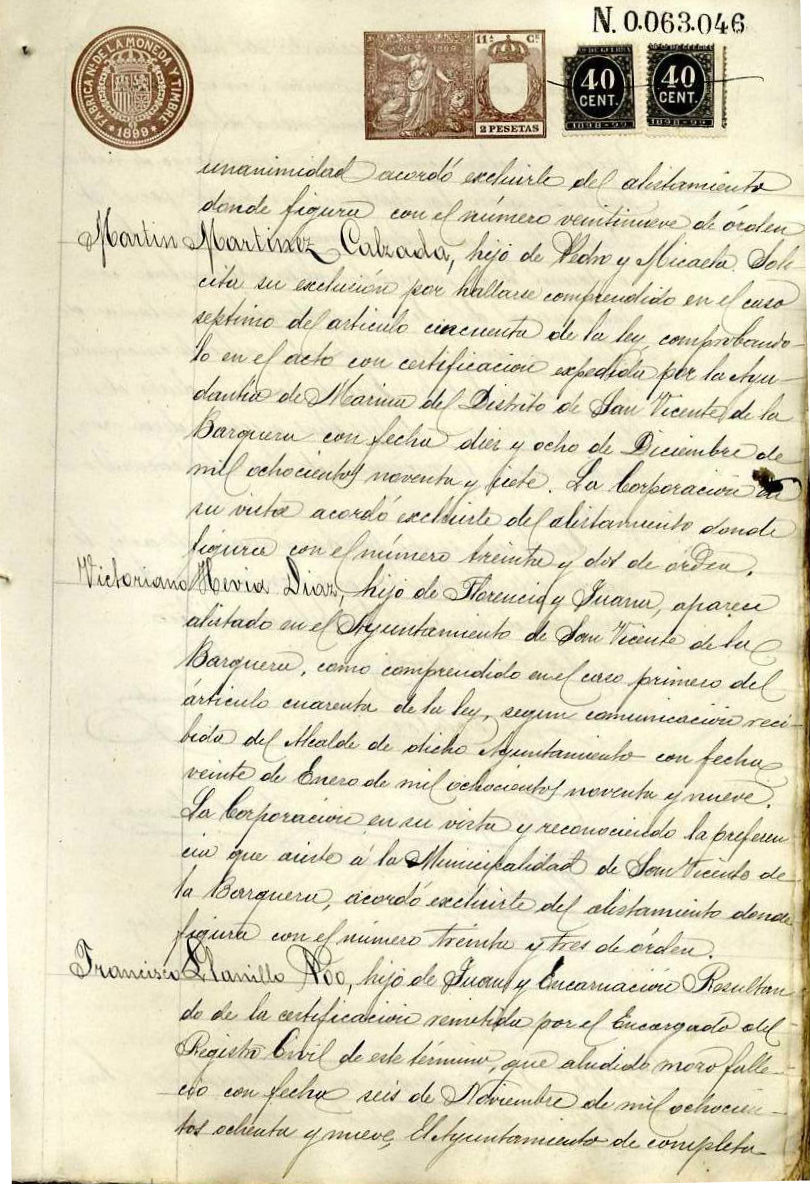 N. 0.063.046
FABRICA NL. DE LA MONEDA Y TIMBRE
* 1899 *
AÑO DE 1899
11ª Cᵉ
2 PESETAS
40
CENT.
1898-99
40
CENT.
1898-99
unanimidad acordó excluirle del alistamiento
donde figura con el número veintinueve de órden
Martin Martinez Calzada, hijo de Pedro y Micaela. Soli-
cita su exclusión por hallarse comprendido en el caso
septimo del articulo cincuenta de la ley, comprobando-
lo en el acto con certificacion expedida por la Ayu-
dantia de Marina del Distrito de San Vicente de la
Barquera con fecha diez y ocho de Diciembre de
mil ochocientos noventa y siete. La Corporacion en
su vista acordó excluirle del alistamiento donde
figura con el número treinta y dos de órden.
Victoriano Hevia Diaz, hijo de Florencio y Juana, aparece
alistado en el Ayuntamiento de San Vicente de la
Barquera, como comprendido en el caso primero del
árticulo cuarenta de la ley, segun comunicacion reci-
bida del Alcalde de dicho Ayuntamiento con fecha
veinte de Enero de mil ochocientos noventa y nueve.
La Corporacion en su vista y reconociendo la preferen
cia que asiste á la Municipalidad de San Vicente de
la Barquera, acordó excluirle del alistamiento donde
figura con el número treinta y tres de órden.
Francisco Llanillo Noo, hijo de Juan y Encarnación Resultan
do de la certificacion remitida por el Encargado del
Registro Civil de este término, que aludido mozo falle-
cio con fecha seis de Noviembre de mil ochocien-
tos ochenta y nueve, El Ayuntamiento de completa